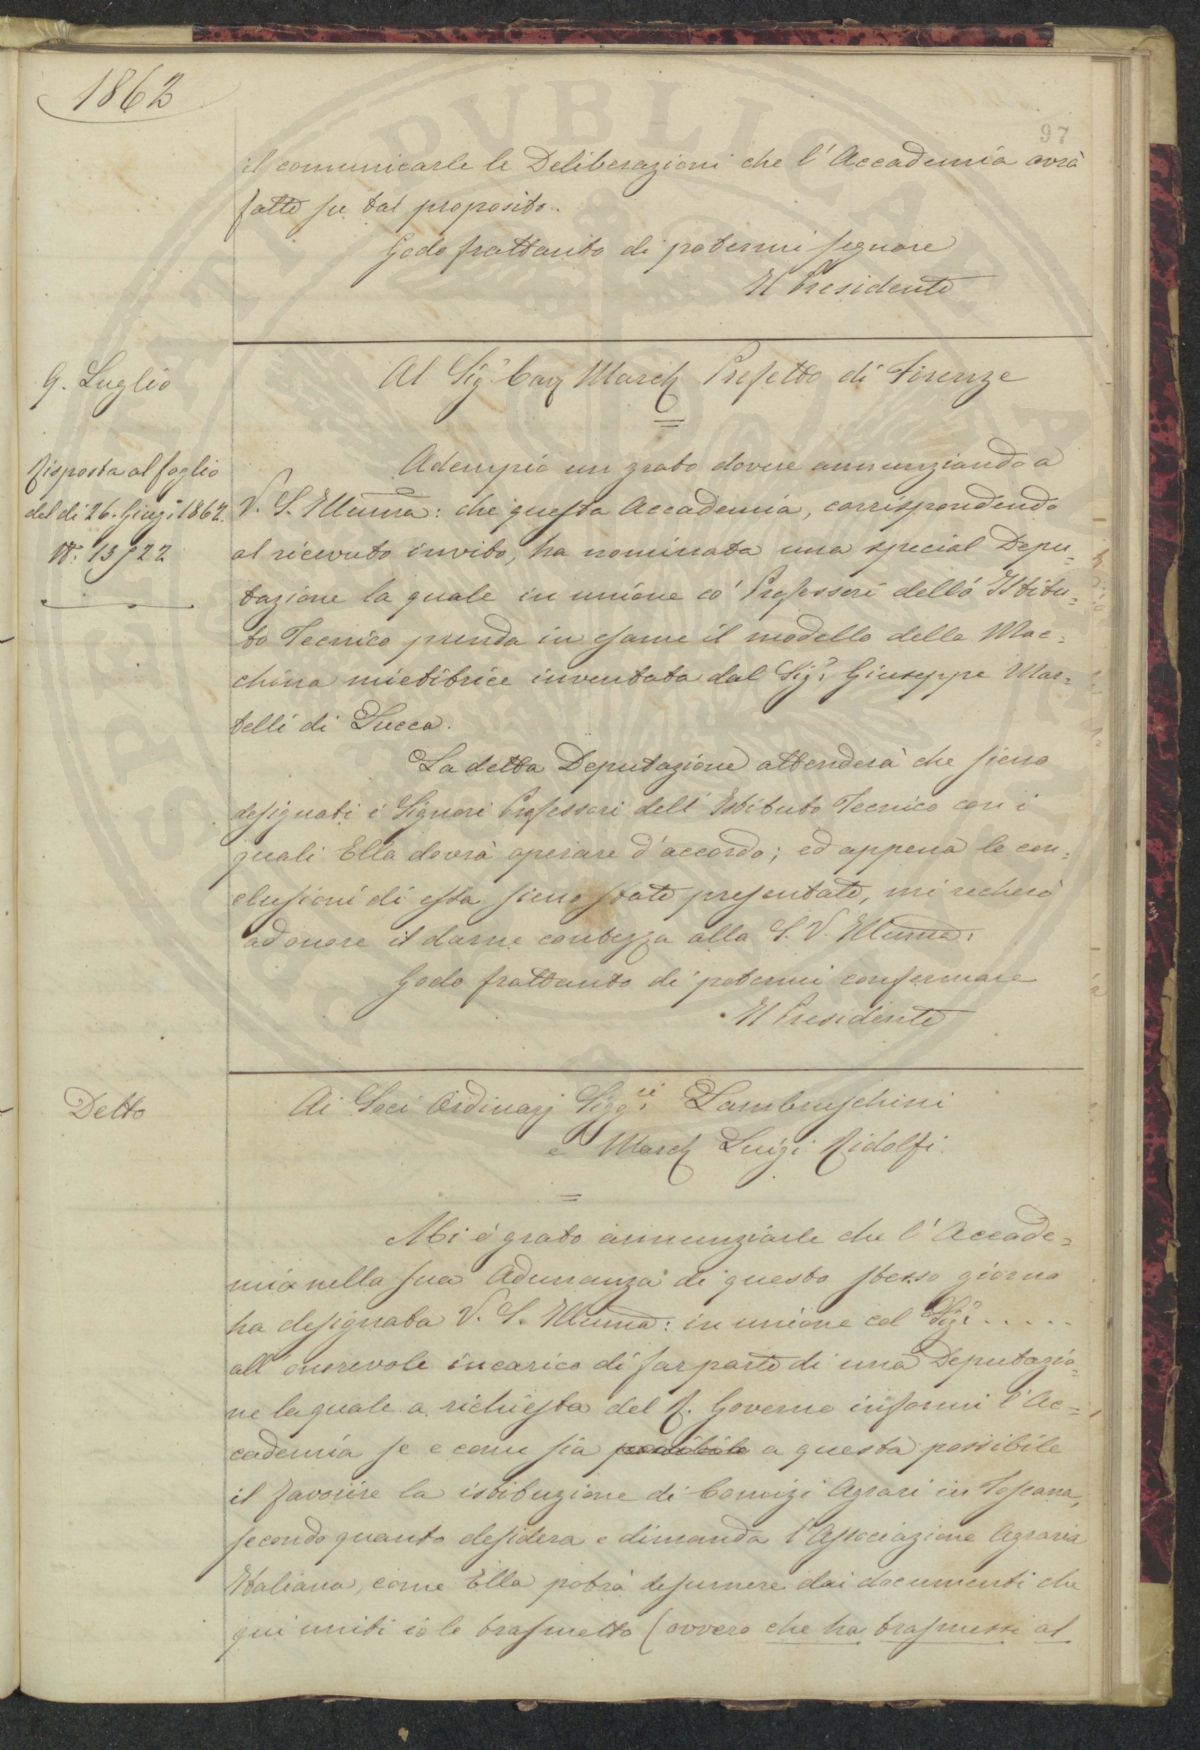 1862
97
il comunicarle le Deliberazioni che l'Accademia avrà
fatte su tal proposito.
Godo frattanto di potermi segnare
Il Presidente
9. Luglio
Al Sig.r Cav March Prefetto di Firenze
Risposta al foglio
del dì 26. Giug.o 1862.
N.o 13722
Adempio un grato dovere annunziando a
V. S. Illuma: che questa Accademia, corrispondendo
al ricevuto invito, ha nominata una special Depu=
tazione la quale in unione co' Professori dello Istitu=
to Tecnico prenda in esame il modello della Mac=
china mietitrice inventata dal Sig.r Giuseppe Mar=
telli di Lucca.
La detta Deputazione attenderà che sieno
designati i Signori Professori dell' Istituto Tecnico con i
quali Ella dovrà operare d'accordo; ed appena le con=
clusioni di essa sieno state presentate, mi recherò
ad onore il darne contezza alla S. V. Illuma:
Godo frattanto di potermi confermare
Il Presidente
Detto
Ai Soci Ordinarj Sigg.ri Lambruschini
e March Luigi Ridolfi.
Mi è grato annunziarle che l' Accade=
mia nella sua Adunanza di questo stesso giorno
ha designata V. S. Illuma: in unione col Sig.r . . . . .
all' onorevole incarico di far parte di una Deputazio=
ne la quale a richiesta del R. Governo informi l' Ac=
cademia se e come sia possibile a questa possibile
il favorire la istituzione di Comizi Agrari in Toscana,
secondo quanto desidera e dimanda l'Associazione Agraria
Italiana, come Ella potrà desumere dai documenti che
qui uniti io le trasmetto (ovvero che ha trasmessi al